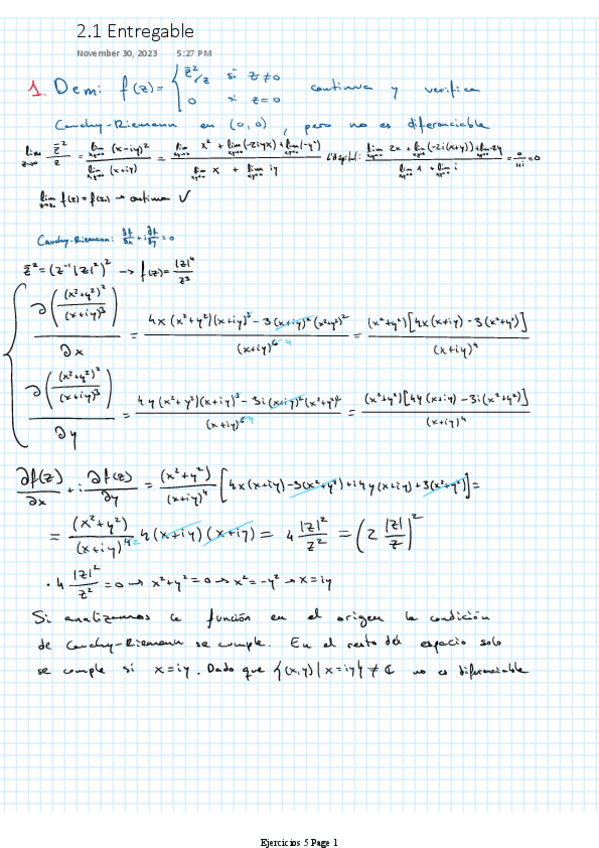 2.1 Entregable
November 30, 2023 5:27 PM
1. Dem: f(z) = { z̄²/z si z≠0 continua y verifica
0 si z=0
Cauchy-Riemann en (0,0), pero no es diferenciable
lim z̄²/z = lim (x-iy)² / lim (x+iy) = lim x² + lim(-2iyx) + lim(-y²) / lim x + lim iy L'Hôpital: lim 2x + lim(-2i(x+y)) + lim 2y / lim 1 + lim i = 0/1+i = 0
lim f(z) = f(z₀) → continua ✓
Cauchy-Riemann: ∂f/∂x + i ∂f/∂y = 0
z̄² = (z⁻¹|z|²)² → f(z) = |z|⁴/z³
∂((x²+y²)²/(x+iy)³)/∂x = 4x(x²+y²)(x+iy)³ - 3(x+iy)²(x²+y²)² / (x+iy)⁶ ⁴ = (x²+y²)[4x(x+iy) - 3(x²+y²)] / (x+iy)⁴
∂((x²+y²)²/(x+iy)³)/∂y = 4y(x²+y²)(x+iy)³ - 3i(x+iy)²(x²+y²)² / (x+iy)⁶ ⁴ = (x²+y²)[4y(x+iy) - 3i(x²+y²)] / (x+iy)⁴
∂f(z)/∂x + i ∂f(z)/∂y = (x²+y²)/(x+iy)⁴ [4x(x+iy) - 3(x²+y²) + i4y(x+iy) + 3(x²+y²)] =
= (x²+y²)/(x+iy)⁴ ² 4(x+iy)(x+iy) = 4 |z|²/z² = (2 |z|/z)²
· 4 |z|²/z² = 0 → x²+y² = 0 → x² = -y² → x = iy
Si analizamos la función en el origen la condición
de Cauchy-Riemann se cumple. En el resto del espacio solo
se cumple si x=iy. Dado que {(x,y) | x=iy} ≠ ℂ no es diferenciable
Ejercicios 5 Page 1